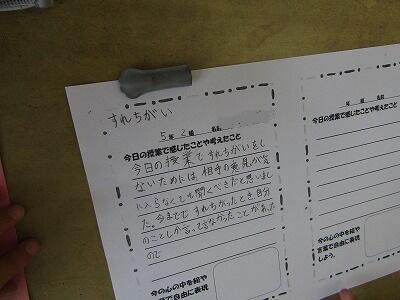 すれちがい
5年 2組 名前
今日の授業で感じたことや考えたこと
今日の授業ですれちがいをし
ないためには、相手の意見が気
に入らなくても聞くべきだと思いまし
た。今まですれちがったとき自分
のことしか言ってなかったことがあった
ので
今の心の中を絵や
言葉で自由に表現
年 組 名前
今日の授業で感じたことや考えたこと
今の心の中を絵や
言葉で自由に表現
しよう。